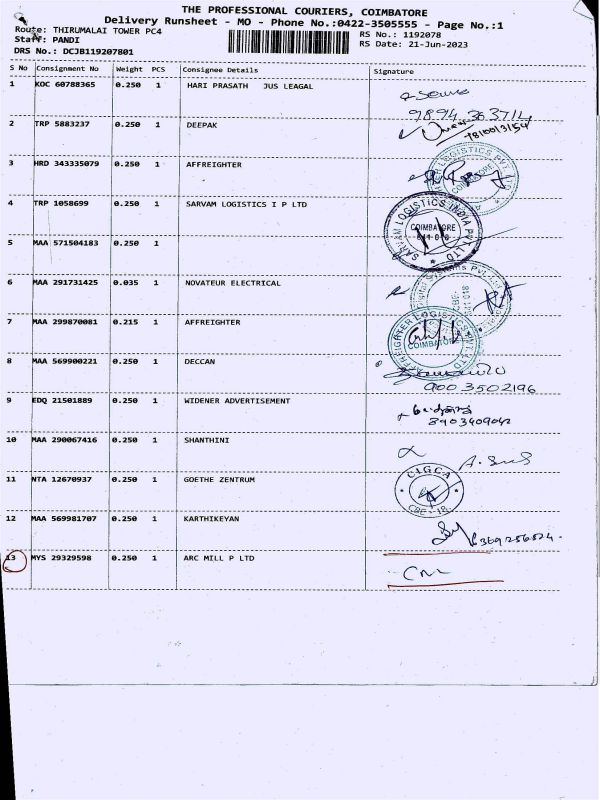 THE PROFESSIONAL COURIERS, COIMBATORE
Delivery Runsheet - MO - Phone No.:0422-3505555 - Page No.:1
Route: THIRUMALAI TOWER PC4
RS No.: 1192078
Staff: PANDI
RS Date: 21-Jun-2023
DRS No.: DCJB119207801
S No Consignment No Weight PCS Consignee Details Signature
1 KOC 60788365 0.250 1 HARI PRASATH JUS LEAGAL
2 TRP 5883237 0.250 1 DEEPAK
3 HRD 343335079 0.250 1 AFFREIGHTER
COIMBATORE
4 TRP 1058699 0.250 1 SARVAM LOGISTICS I P LTD
SARVAM LOGISTICS INDIA PVT. LTD
COIMBATORE
5 MAA 571504183 0.250 1
6 MAA 291731425 0.035 1 NOVATEUR ELECTRICAL
7 MAA 299870081 0.215 1 AFFREIGHTER
AFFREIGHTER LOGISTICS PVT. LTD
COIMBATORE
8 MAA 569900221 0.250 1 DECCAN
9003502196
9 EDQ 21501889 0.250 1 WIDENER ADVERTISEMENT
8903409042
10 MAA 290067416 0.250 1 SHANTHINI
11 NTA 12670937 0.250 1 GOETHE ZENTRUM
CIGCA
CBE - 18
12 MAA 569981707 0.250 1 KARTHIKEYAN
13 MYS 29329598 0.250 1 ARC MILL P LTD